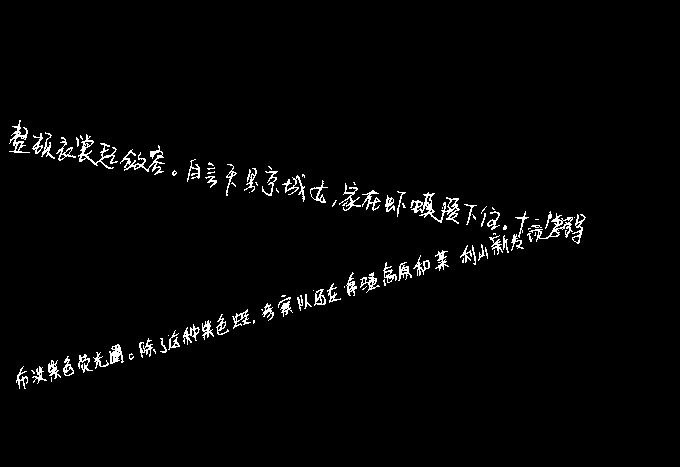 整顿衣裳起敛容。自言本是京城女,家在虾蟆陵下住。十三学得
布淡紫色荧光圈。除了这种紫色蛙,考察队还在拿骚高原和莱利山新发现